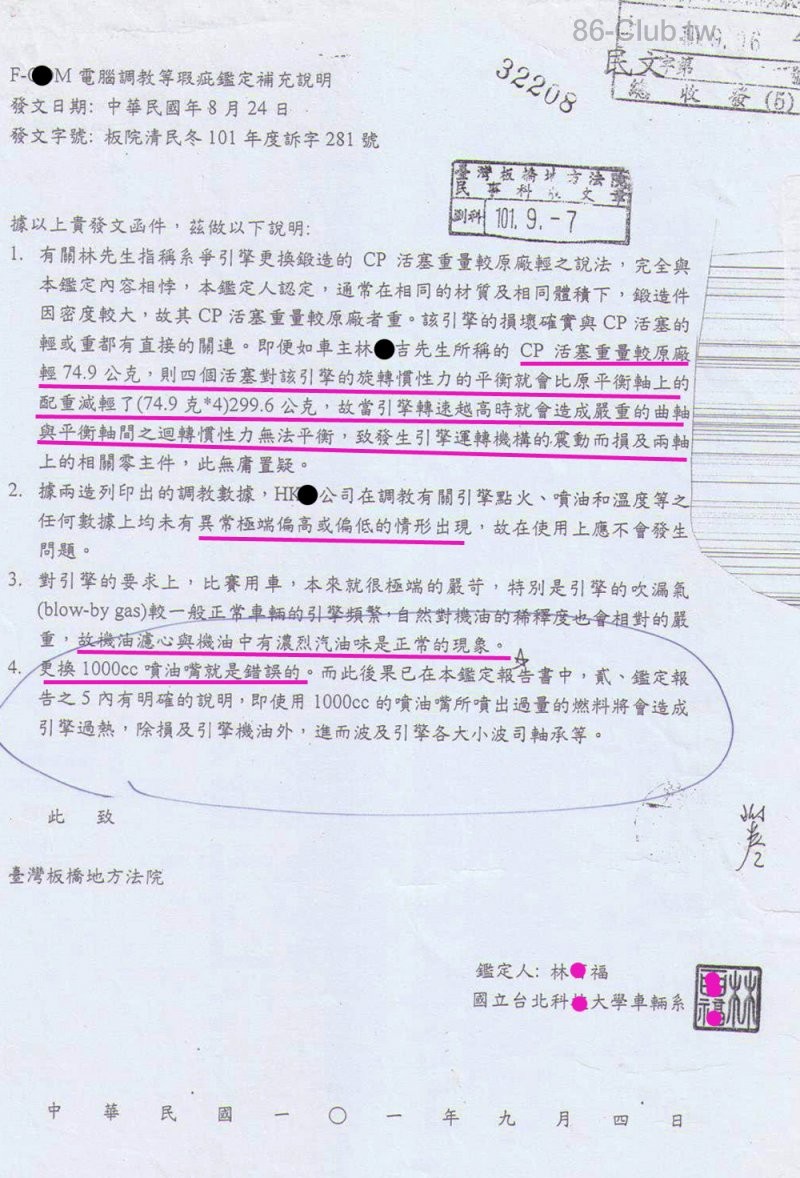 86-Club.tw
32208
民文字第 號
總收發(5)
F-M 電腦調教等瑕疵鑑定補充說明
發文日期: 中華民國年 8 月 24 日
發文字號: 板院清民冬 101 年度訴字 281 號
臺灣板橋地方法院
民事科收文章
101. 9. -7
據以上貴發文函件，茲做以下說明:
1. 有關林先生指稱系爭引擎更換鍛造的 CP 活塞重量較原廠輕之說法，完全與
本鑑定內容相悖，本鑑定人認定，通常在相同的材質及相同體積下，鍛造件
因密度較大，故其 CP 活塞重量較原廠者重。該引擎的損壞確實與 CP 活塞的
輕或重都有直接的關連。即便如車主林吉先生所稱的 CP 活塞重量較原廠
輕 74.9 公克，則四個活塞對該引擎的旋轉慣性力的平衡就會比原平衡軸上的
配重減輕了(74.9 克*4)299.6 公克，故當引擎轉速越高時就會造成嚴重的曲軸
與平衡軸間之迴轉慣性力無法平衡，致發生引擎運轉機構的震動而損及兩軸
上的相關零主件，此無庸置疑。
2. 據兩造列印出的調教數據，HK公司在調教有關引擎點火、噴油和溫度等之
任何數據上均未有異常極端偏高或偏低的情形出現，故在使用上應不會發生
問題。
3. 對引擎的要求上，比賽用車，本來就很極端的嚴苛，特別是引擎的吹漏氣
(blow-by gas)較一般正常車輛的引擎頻繁，自然對機油的稀釋度也會相對的嚴
重，故機油濾心與機油中有濃烈汽油味是正常的現象。
4. 更換 1000cc 噴油嘴就是錯誤的。而此後果已在本鑑定報告書中，貳、鑑定報
告之 5 內有明確的說明，即使用 1000cc 的噴油嘴所噴出過量的燃料將會造成
引擎過熱，除損及引擎機油外，進而波及引擎各大小波司軸承等。
此 致
臺灣板橋地方法院
鑑定人: 林福
國立台北科大學車輛系
林福
中華民國一〇一年九月四日